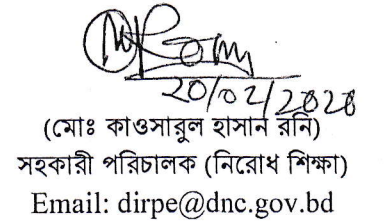 20/02/2020
(মোঃ কাওসারুল হাসান রনি)
সহকারী পরিচালক (নিরোধ শিক্ষা)
Email: dirpe@dnc.gov.bd